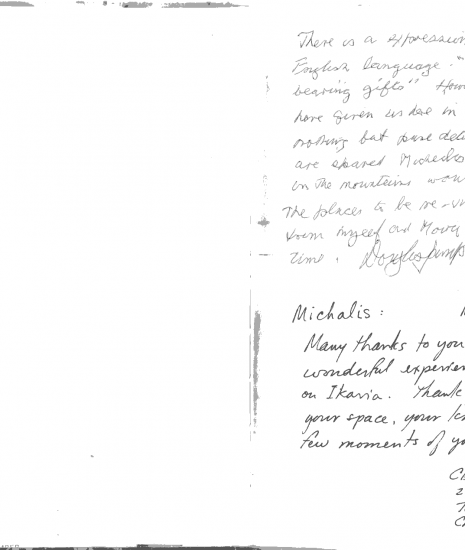 There is a expression
English language. "
bearing gifts" How
have given us here in
nothing but pure deli
are
in the mountains
The places to be re-vi
from myself and
time.
Michalis:
Many thanks to you
wonderful experien
on Ikaria. Thank
your space, your k
few moments of yo
C
2
T
C